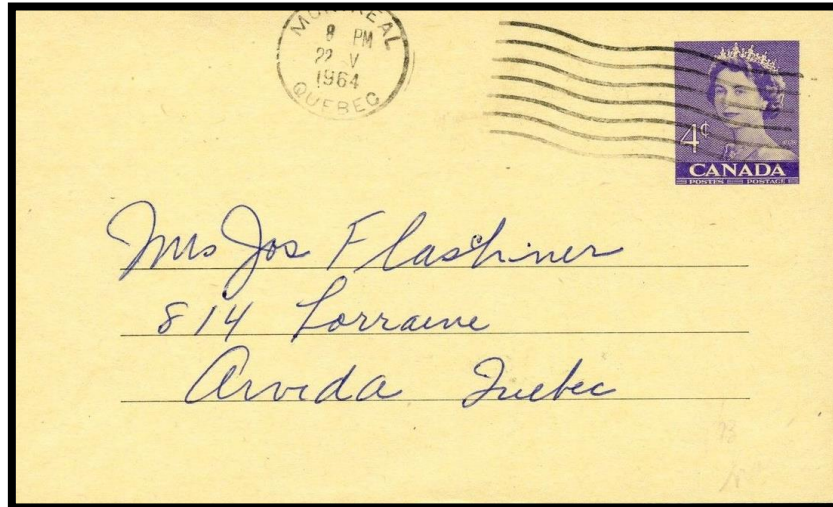 MONTREAL
8 PM
22 V
1964
QUEBEC
4¢
CANADA
POSTES POSTAGE
Mrs Jos Flaschner
814 Lorraine
Arvida Quebec